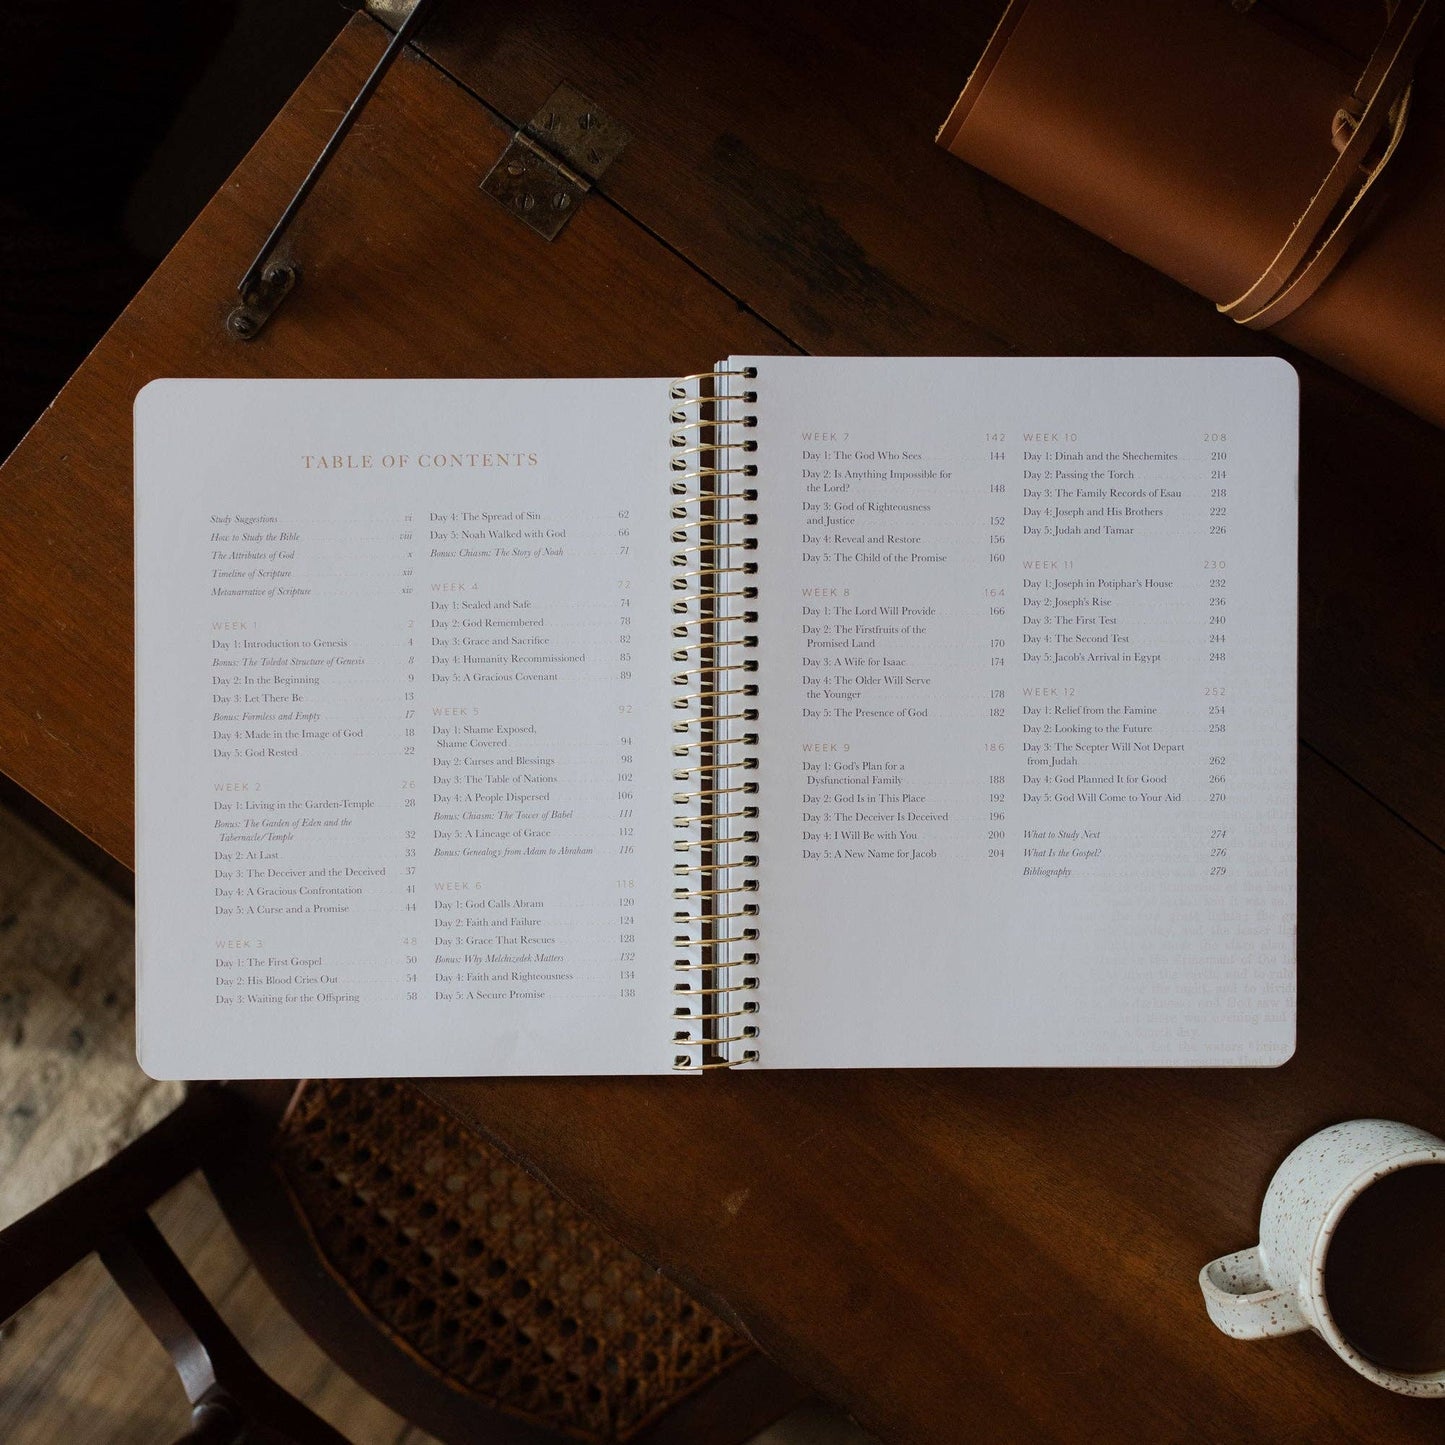 TABLE OF CONTENTS
Study Suggestions vi
How to Study the Bible viii
The Attributes of God x
Timeline of Scripture xii
Metanarrative of Scripture xiv
WEEK 1 2
Day 1: Introduction to Genesis 4
Bonus: The Toledot Structure of Genesis 8
Day 2: In the Beginning 9
Day 3: Let There Be 13
Bonus: Formless and Empty 17
Day 4: Made in the Image of God 18
Day 5: God Rested 22
WEEK 2 26
Day 1: Living in the Garden-Temple 28
Bonus: The Garden of Eden and the
Tabernacle/Temple 32
Day 2: At Last 33
Day 3: The Deceiver and the Deceived 37
Day 4: A Gracious Confrontation 41
Day 5: A Curse and a Promise 44
WEEK 3 48
Day 1: The First Gospel 50
Day 2: His Blood Cries Out 54
Day 3: Waiting for the Offspring 58
Day 4: The Spread of Sin 62
Day 5: Noah Walked with God 66
Bonus: Chiasm: The Story of Noah 71
WEEK 4 72
Day 1: Sealed and Safe 74
Day 2: God Remembered 78
Day 3: Grace and Sacrifice 82
Day 4: Humanity Recommissioned 85
Day 5: A Gracious Covenant 89
WEEK 5 92
Day 1: Shame Exposed,
Shame Covered 94
Day 2: Curses and Blessings 98
Day 3: The Table of Nations 102
Day 4: A People Dispersed 106
Bonus: Chiasm: The Tower of Babel 111
Day 5: A Lineage of Grace 112
Bonus: Genealogy from Adam to Abraham 116
WEEK 6 118
Day 1: God Calls Abram 120
Day 2: Faith and Failure 124
Day 3: Grace That Rescues 128
Bonus: Why Melchizedek Matters 132
Day 4: Faith and Righteousness 134
Day 5: A Secure Promise 138
WEEK 7 142
Day 1: The God Who Sees 144
Day 2: Is Anything Impossible for
the Lord? 148
Day 3: God of Righteousness
and Justice 152
Day 4: Reveal and Restore 156
Day 5: The Child of the Promise 160
WEEK 8 164
Day 1: The Lord Will Provide 166
Day 2: The Firstfruits of the
Promised Land 170
Day 3: A Wife for Isaac 174
Day 4: The Older Will Serve
the Younger 178
Day 5: The Presence of God 182
WEEK 9 186
Day 1: God's Plan for a
Dysfunctional Family 188
Day 2: God Is in This Place 192
Day 3: The Deceiver Is Deceived 196
Day 4: I Will Be with You 200
Day 5: A New Name for Jacob 204
WEEK 10 208
Day 1: Dinah and the Shechemites 210
Day 2: Passing the Torch 214
Day 3: The Family Records of Esau 218
Day 4: Joseph and His Brothers 222
Day 5: Judah and Tamar 226
WEEK 11 230
Day 1: Joseph in Potiphar's House 232
Day 2: Joseph's Rise 236
Day 3: The First Test 240
Day 4: The Second Test 244
Day 5: Jacob's Arrival in Egypt 248
WEEK 12 252
Day 1: Relief from the Famine 254
Day 2: Looking to the Future 258
Day 3: The Scepter Will Not Depart
from Judah 262
Day 4: God Planned It for Good 266
Day 5: God Will Come to Your Aid 270
What to Study Next 274
What Is the Gospel? 276
Bibliography 279